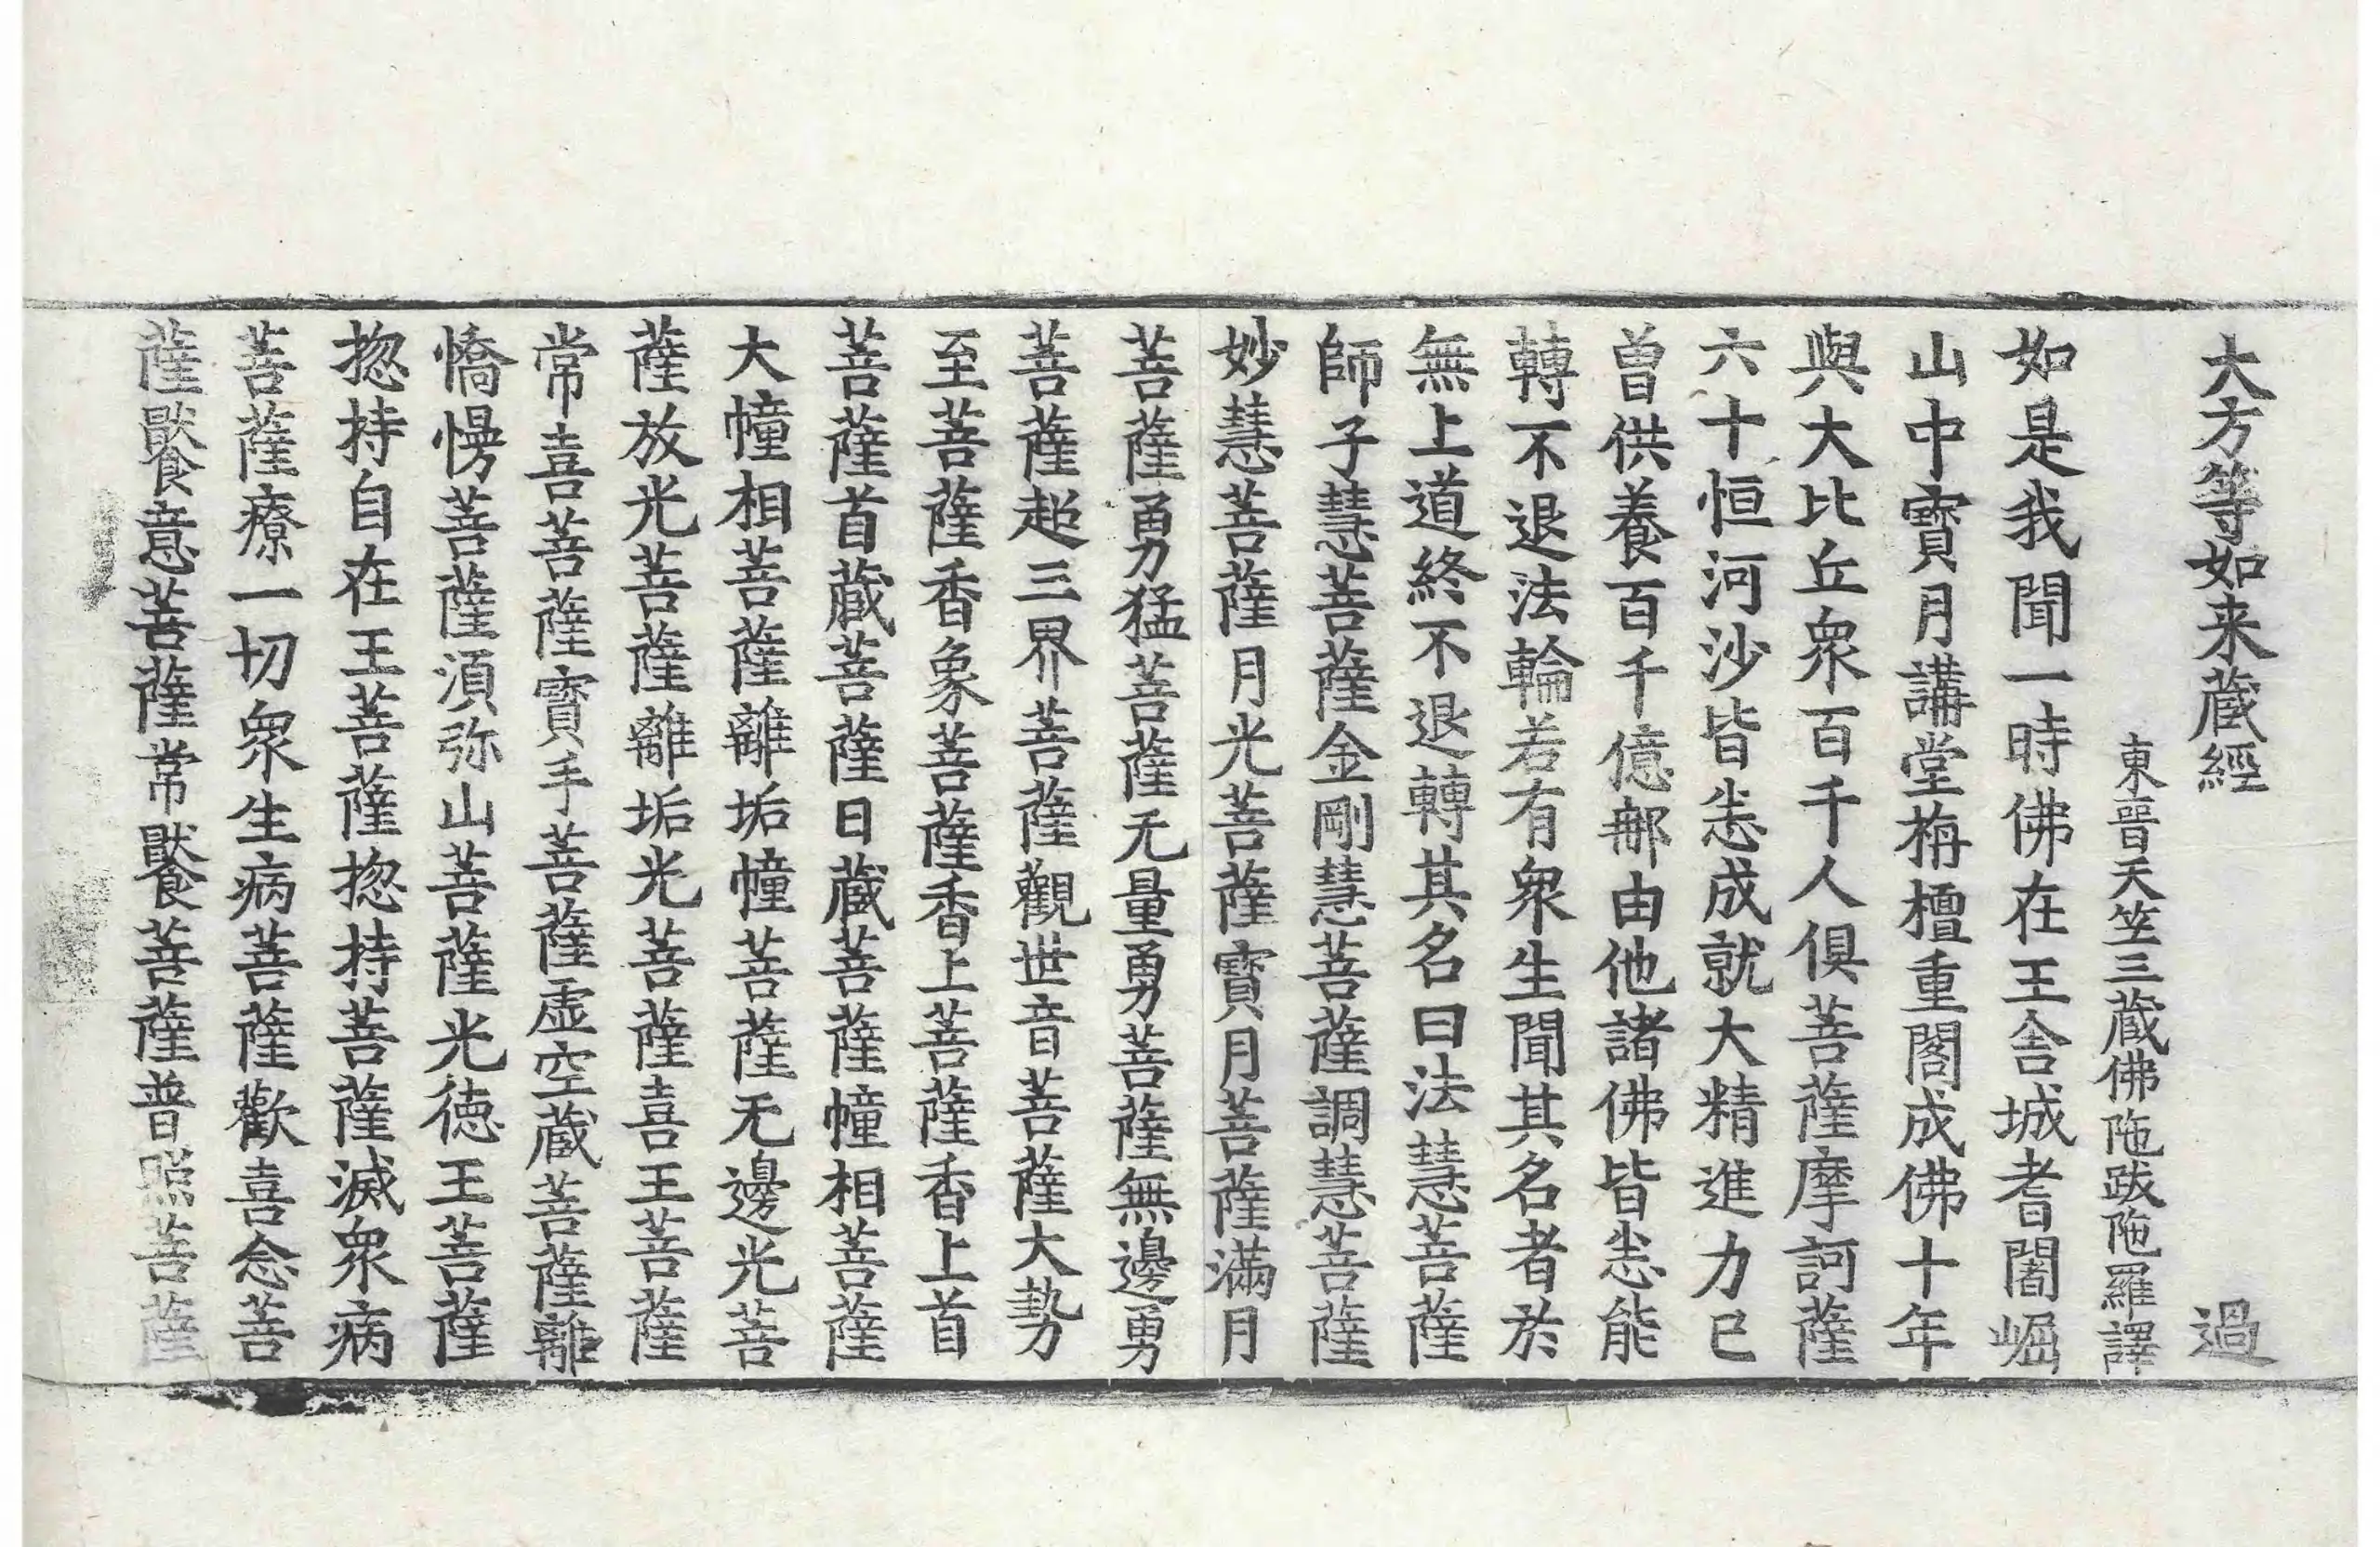 大方等如来蔵經 過
東晉天笁三蔵佛陁跋陁羅譯
如是我聞一時佛在王舎城耆闍崛
山中寳月講堂栴檀重閣成佛十年
與大比丘衆百千人俱菩薩摩訶薩
六十恒河沙皆悉成就大精進力已
曽供養百千億𨚗由他諸佛皆悉能
轉不退法輪若有衆生聞其名者於
無上道終不退轉其名曰法慧菩薩
師子慧菩薩金剛慧菩薩調慧菩薩
妙慧菩薩月光菩薩寳月菩薩滿月
菩薩勇猛菩薩无量勇菩薩無邊勇
菩薩超三界菩薩觀世音菩薩大勢
至菩薩香象菩薩香上菩薩香上首
菩薩首蔵菩薩日蔵菩薩幢相菩薩
大幢相菩薩離垢幢菩薩无邊光菩
薩放光菩薩離垢光菩薩喜王菩薩
常喜菩薩寳手菩薩虚空蔵菩薩離
憍慢菩薩湏弥山菩薩光徳王菩薩
揔持自在王菩薩揔持菩薩滅衆病
菩薩療一切衆生病菩薩歡喜念菩
薩饜意菩薩常饜菩薩普照菩薩